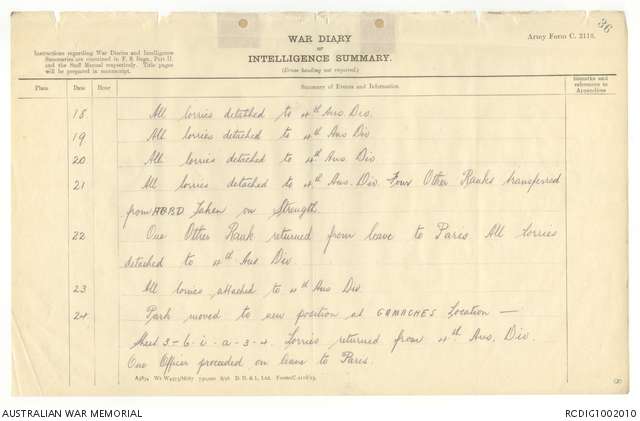 36
WAR DIARY
or
INTELLIGENCE SUMMARY.
(Erase heading not required.)
Army Form C. 2118.
Instructions regarding War Diaries and Intelligence
Summaries are contained in F. S. Regs., Part II.
and the Staff Manual respectively. Title pages
will be prepared in manuscript.
Place Date Hour Summary of Events and Information Remarks and references to Appendices
18 All lorries detached to 4th Aus Div.
19 All lorries detached to 4th Aus Div
20 All lorries detached to 4th Aus Div
21 All lorries detached to 4th Aus. Div. Four Other Ranks transferred
from ABRD taken on Strength.
22 One Other Rank returned from leave to Paris All Lorries
detached to 4th Aus Div.
23 All lorries attached to 4th Aus Div
24 Park moved to new position at GAMACHES Location —
Sheet 3-6-i-a-3-4. Lorries returned from 4th Aus. Div.
One Officer proceeded on leave to Paris.
D. D. & L., Ltd.
AUSTRALIAN WAR MEMORIAL
RCDIG1002010